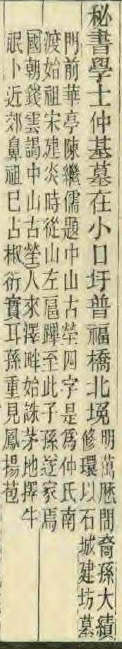 秘書學士仲基墓在小口圩普福橋北堍
明萬歷間裔孫大績
修環以石城建坊墓
門前華亭陳繼儒題中山古塋四字是爲仲氏南
渡始祖宋建炎時從山左扈蹕至此子孫遂家焉
國朝錢雲謁中山古塋人來澤畔始誅茅地擇牛
眠卜近郊鼻祖已占椒衍實耳孫重見鳳揚苞